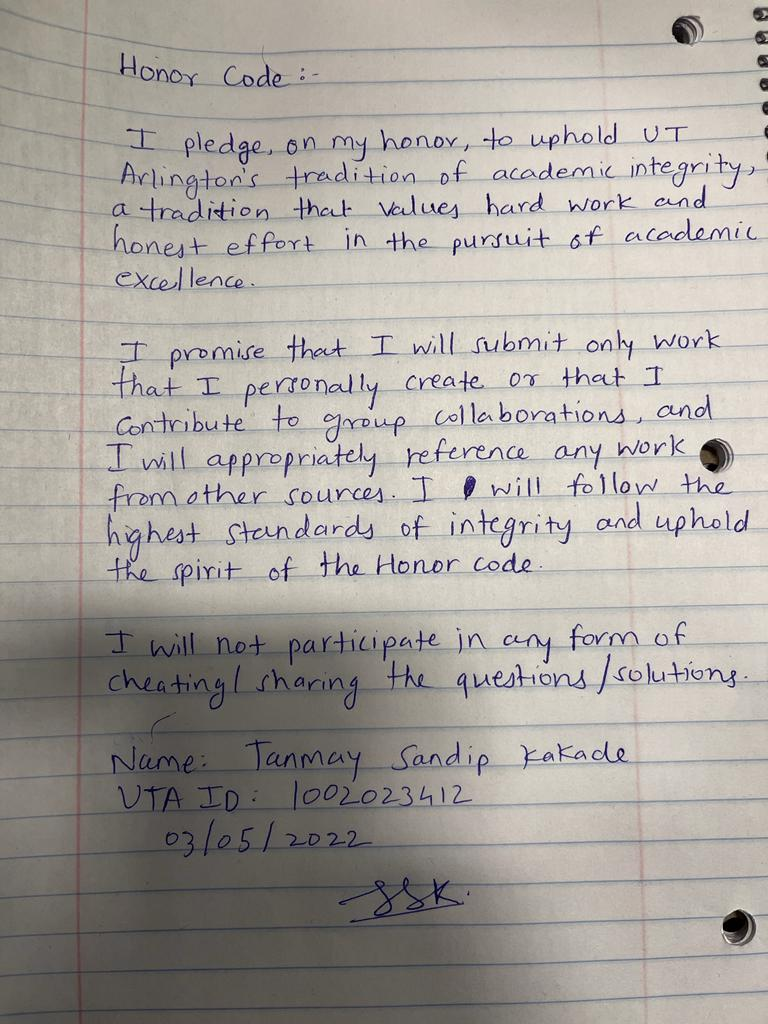 Honor Code :-
I pledge, on my honor, to uphold UT
Arlington's tradition of academic integrity,
a tradition that values hard work and
honest effort in the pursuit of academic
excellence.
I promise that I will submit only work
that I personally create or that I
contribute to group collaborations, and
I will appropriately reference any work
from other sources. I will follow the
highest standards of integrity and uphold
the spirit of the Honor code.
I will not participate in any form of
cheating/ sharing the questions/solutions.
Name: Tanmay Sandip Kakade
UTA ID: 1002023412
03/05/2022